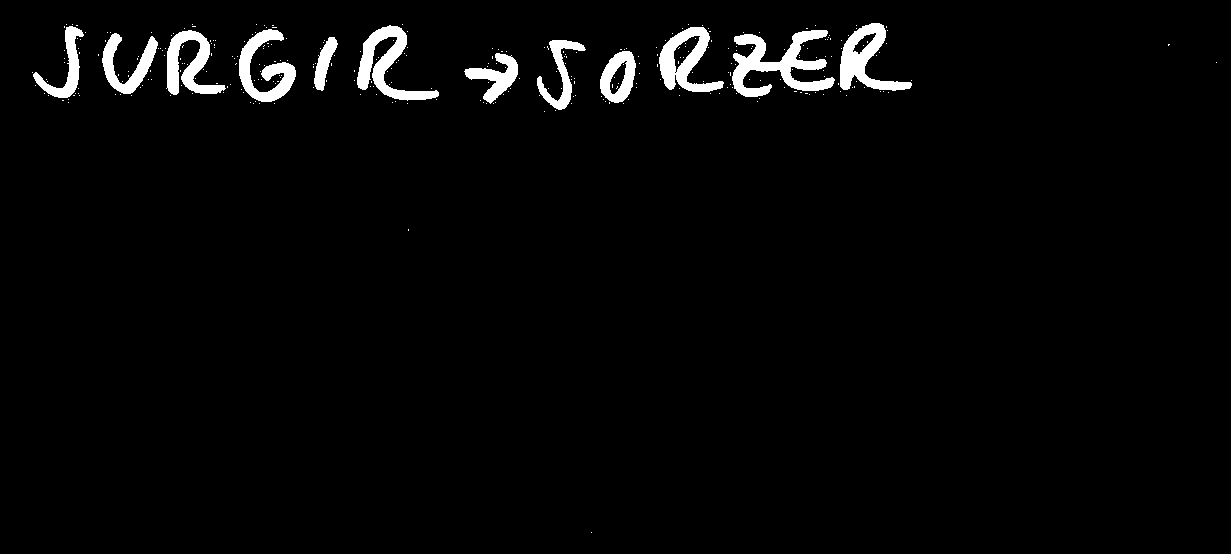 SURGIR → SORZER